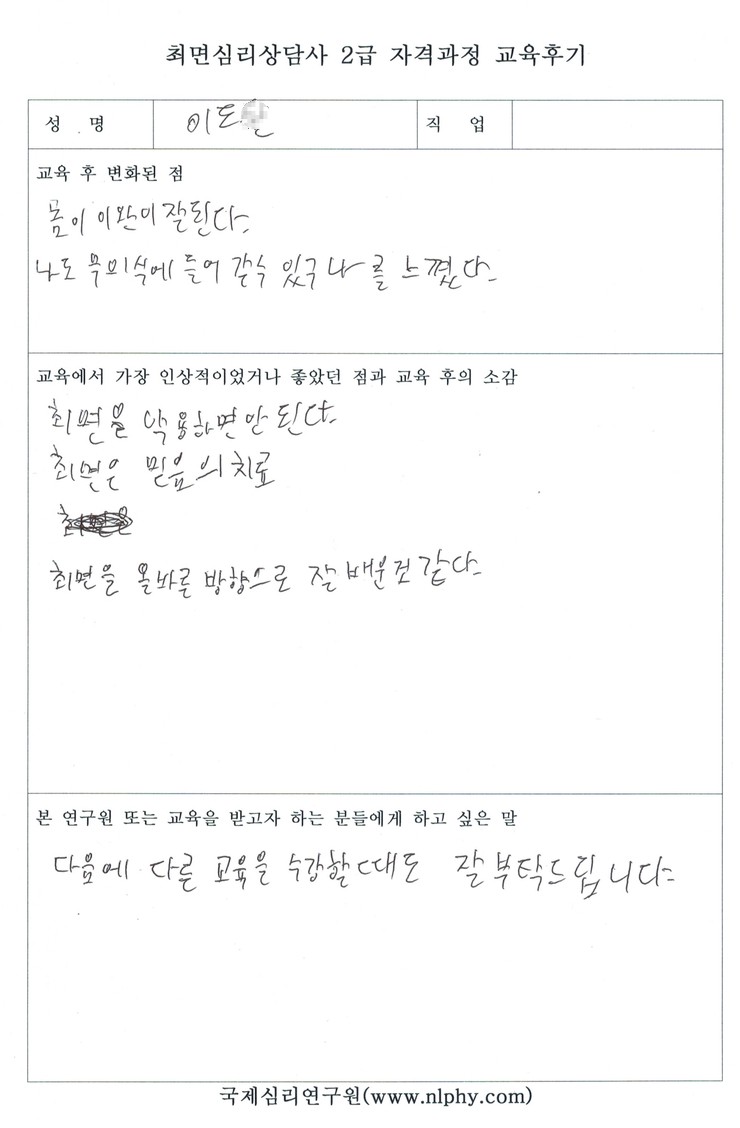 최면심리상담사 2급 자격과정 교육후기
성 명 이도 직 업
교육 후 변화된 점
몸이 이완이 잘된다.
나도 무의식에 들어 갈수 있구나 를 느꼈다.
교육에서 가장 인상적이었거나 좋았던 점과 교육 후의 소감
최면을 악용하면 안 된다.
최면은 믿음의 치료
최면을 올바른 방향으로 잘 배운것 같다.
본 연구원 또는 교육을 받고자 하는 분들에게 하고 싶은 말
다음에 다른 교육을 수강할 때도 잘 부탁드립니다.
국제심리연구원(www.nlphy.com)